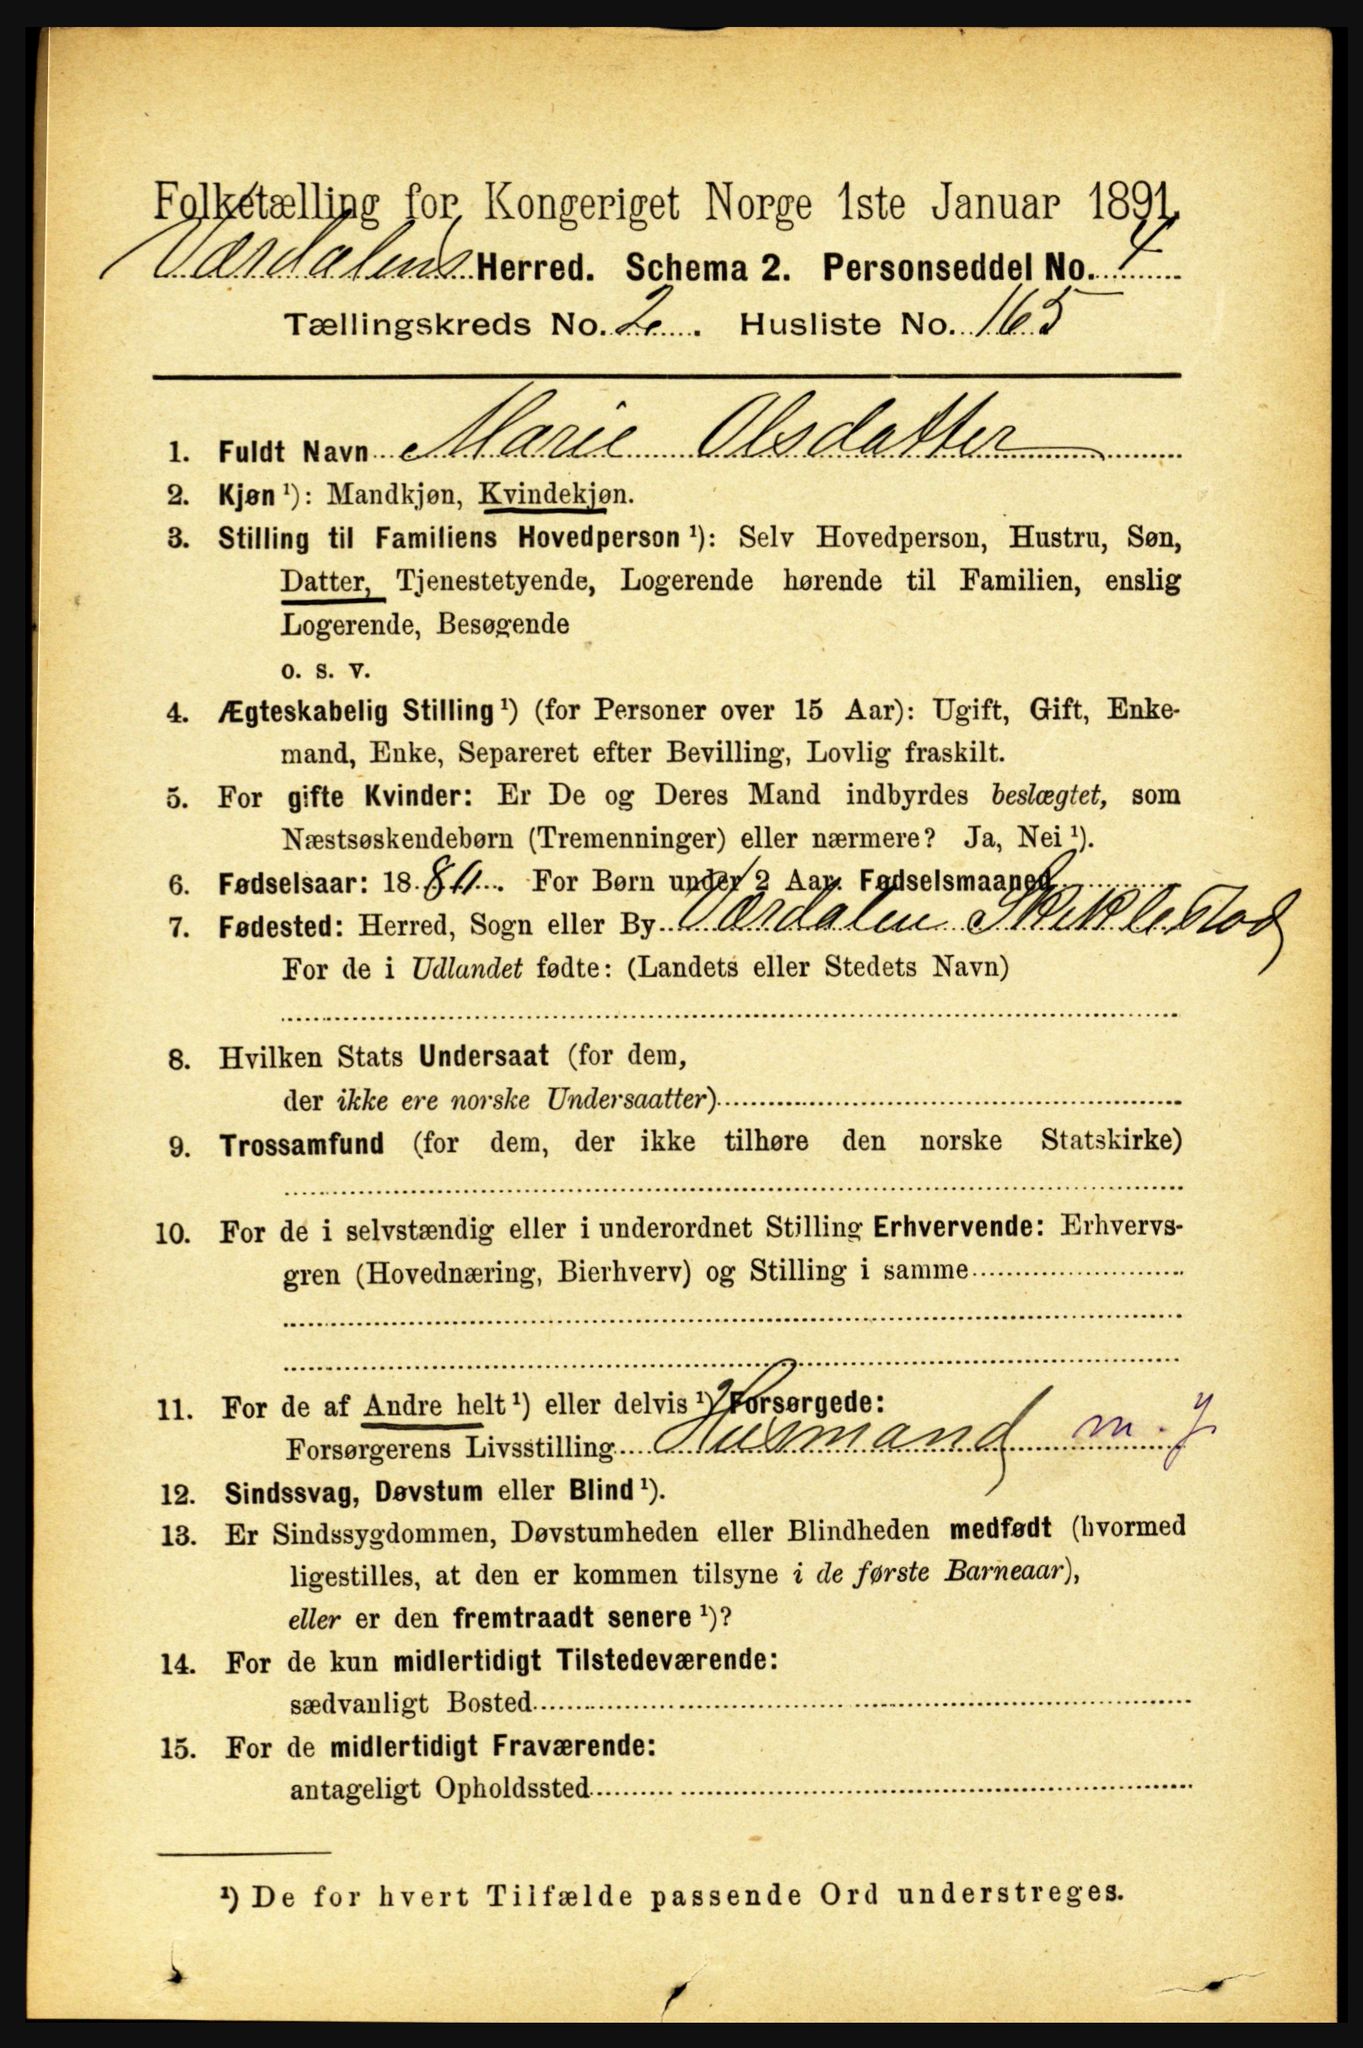 Folketælling for Kongeriget Norge 1ste Januar 1891.
Værdalens Herred. Schema 2. Personseddel No. 4
Tællingskreds No. 2. Husliste No. 165
1. Fuldt Navn Marie Olsdatter
2. Kjøn ¹): Mandkjøn, Kvindekjøn.
3. Stilling til Familiens Hovedperson ¹): Selv Hovedperson, Hustru, Søn,
Datter, Tjenestetyende, Logerende hørende til Familien, enslig
Logerende, Besøgende
o. s. v.
4. Ægteskabelig Stilling ¹) (for Personer over 15 Aar): Ugift, Gift, Enke-
mand, Enke, Separeret efter Bevilling, Lovlig fraskilt.
5. For gifte Kvinder: Er De og Deres Mand indbyrdes beslægtet, som
Næstsøskendebørn (Tremenninger) eller nærmere? Ja, Nei ¹).
6. Fødselsaar: 18 . For Børn under 2 Aar: Fødselsmaaned
7. Fødested: Herred, Sogn eller By Værdalen
For de i Udlandet fødte: (Landets eller Stedets Navn)
8. Hvilken Stats Undersaat (for dem,
der ikke ere norske Undersaatter)
9. Trossamfund (for dem, der ikke tilhøre den norske Statskirke)
10. For de i selvstændig eller i underordnet Stilling Erhvervende: Erhvervs-
gren (Hovednæring, Bierhverv) og Stilling i samme
11. For de af Andre helt ¹) eller delvis ¹) Forsørgede:
Forsørgerens Livsstilling Husmand m. j.
12. Sindssvag, Døvstum eller Blind ¹).
13. Er Sindssygdommen, Døvstumheden eller Blindheden medfødt (hvormed
ligestilles, at den er kommen tilsyne i de første Barneaar),
eller er den fremtraadt senere ¹)?
14. For de kun midlertidigt Tilstedeværende:
sædvanligt Bosted
15. For de midlertidigt Fraværende:
antageligt Opholdssted
¹) De for hvert Tilfælde passende Ord understreges.